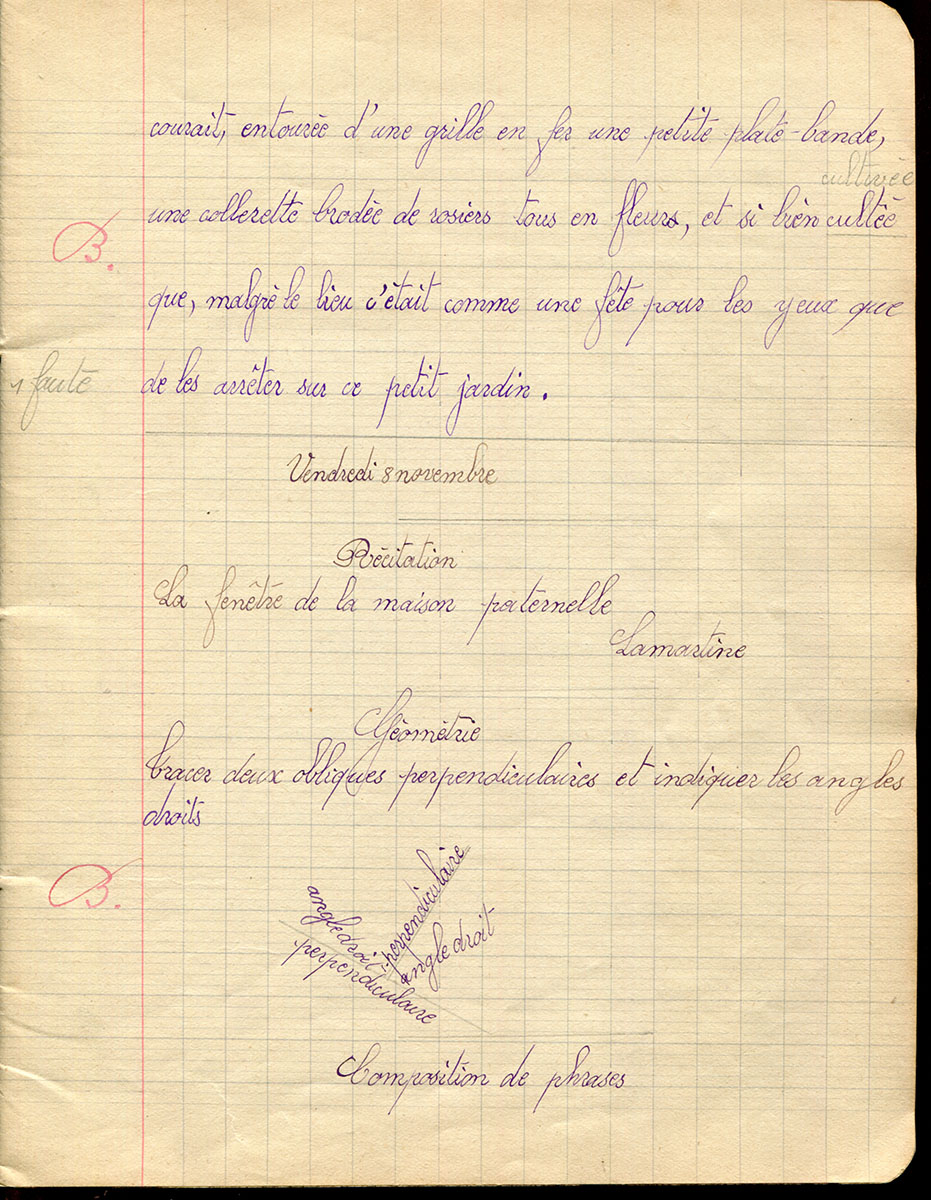 courait, entourée d'une grille en fer une petite plate-bande,
cultivée
une collerette brodée de rosiers tous en fleurs, et si bien cultée
B.
que, malgré le lieu c'était comme une fête pour les yeux que
1 faute
de les arrêter sur ce petit jardin.
Vendredi 8 novembre
Récitation
La fenêtre de la maison paternelle
Lamartine
Géométrie
Tracer deux obliques perpendiculaires et indiquer les angles
droits
B.
perpendiculaire
angle droit
angle droit
perpendiculaire
Composition de phrases